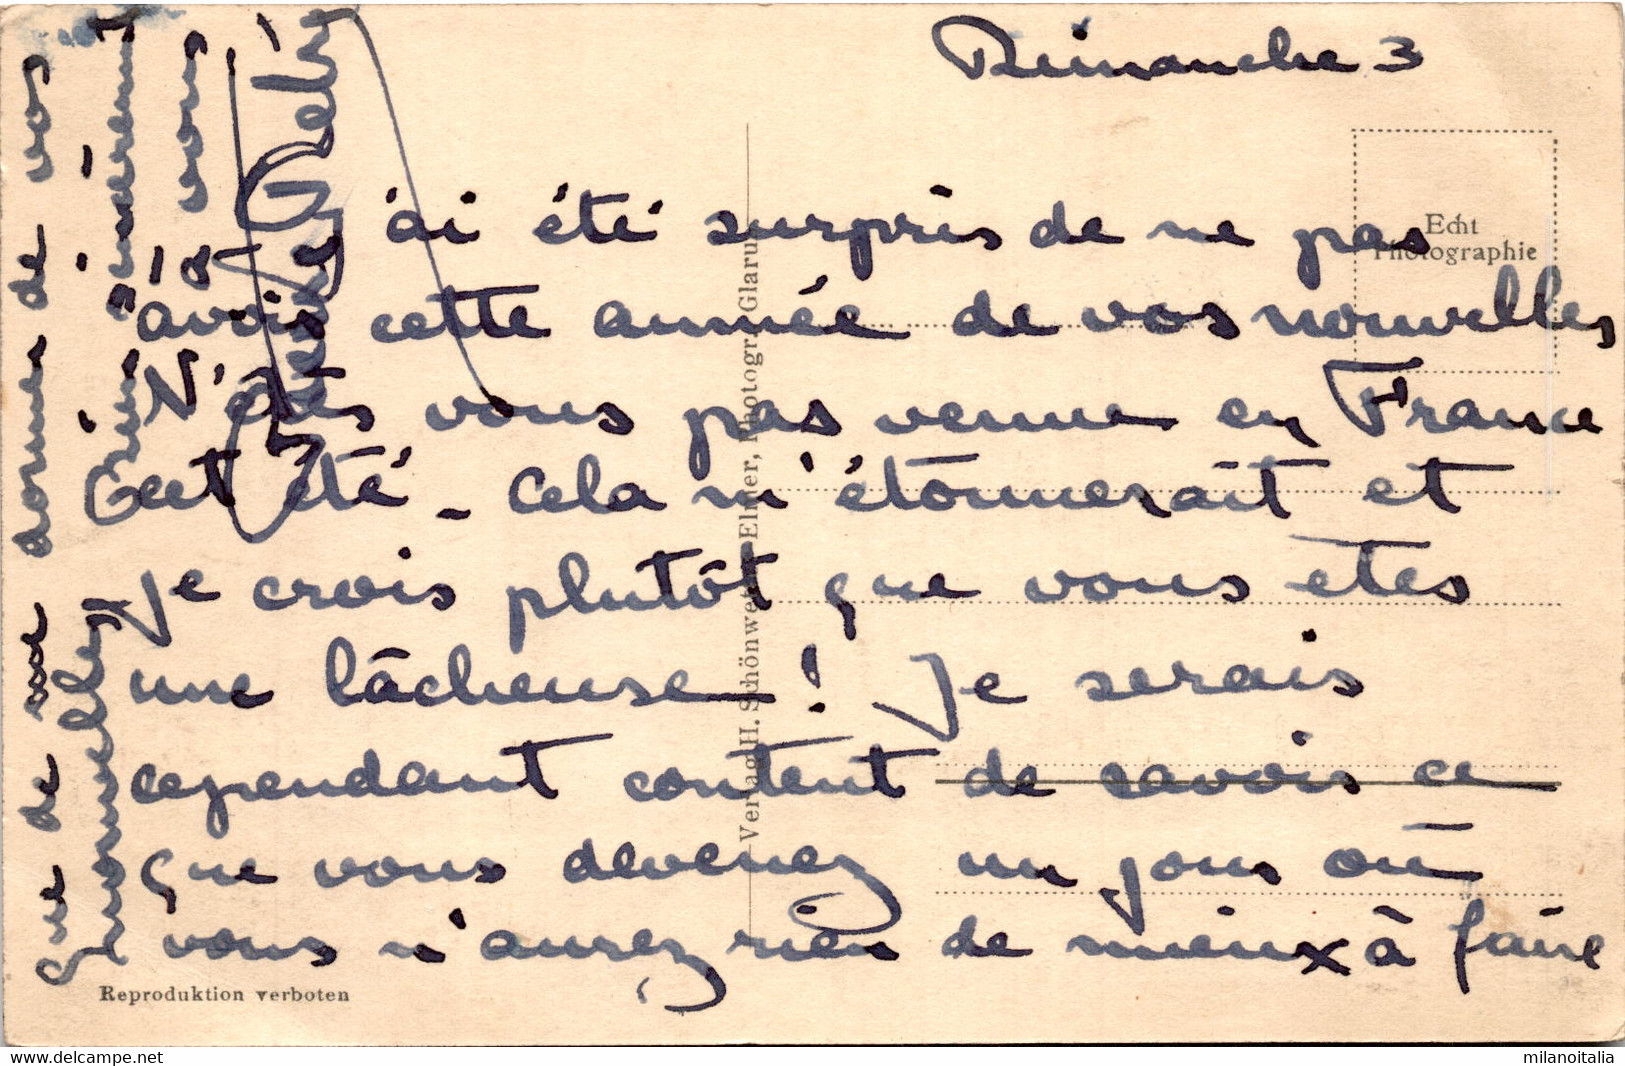 Dimanche 3
J'ai été surpris de ne pas
avoir cette année de vos nouvelles
N'êtes vous pas venue en France
cet été _ Cela m'étonnerait et
je crois plutôt que vous êtes
une lâcheuse ! Je serais
cependant content de savoir ce
que vous devenez un jour où
vous n'aurez rien de mieux à faire
que de me donner de vos
nouvelles
sincèrement
à vous
Echt
Photographie
Verlag H. Schönwetter-Elmer, Photogr. Glarus
Reproduktion verboten
delcampe.net
milanoitalia